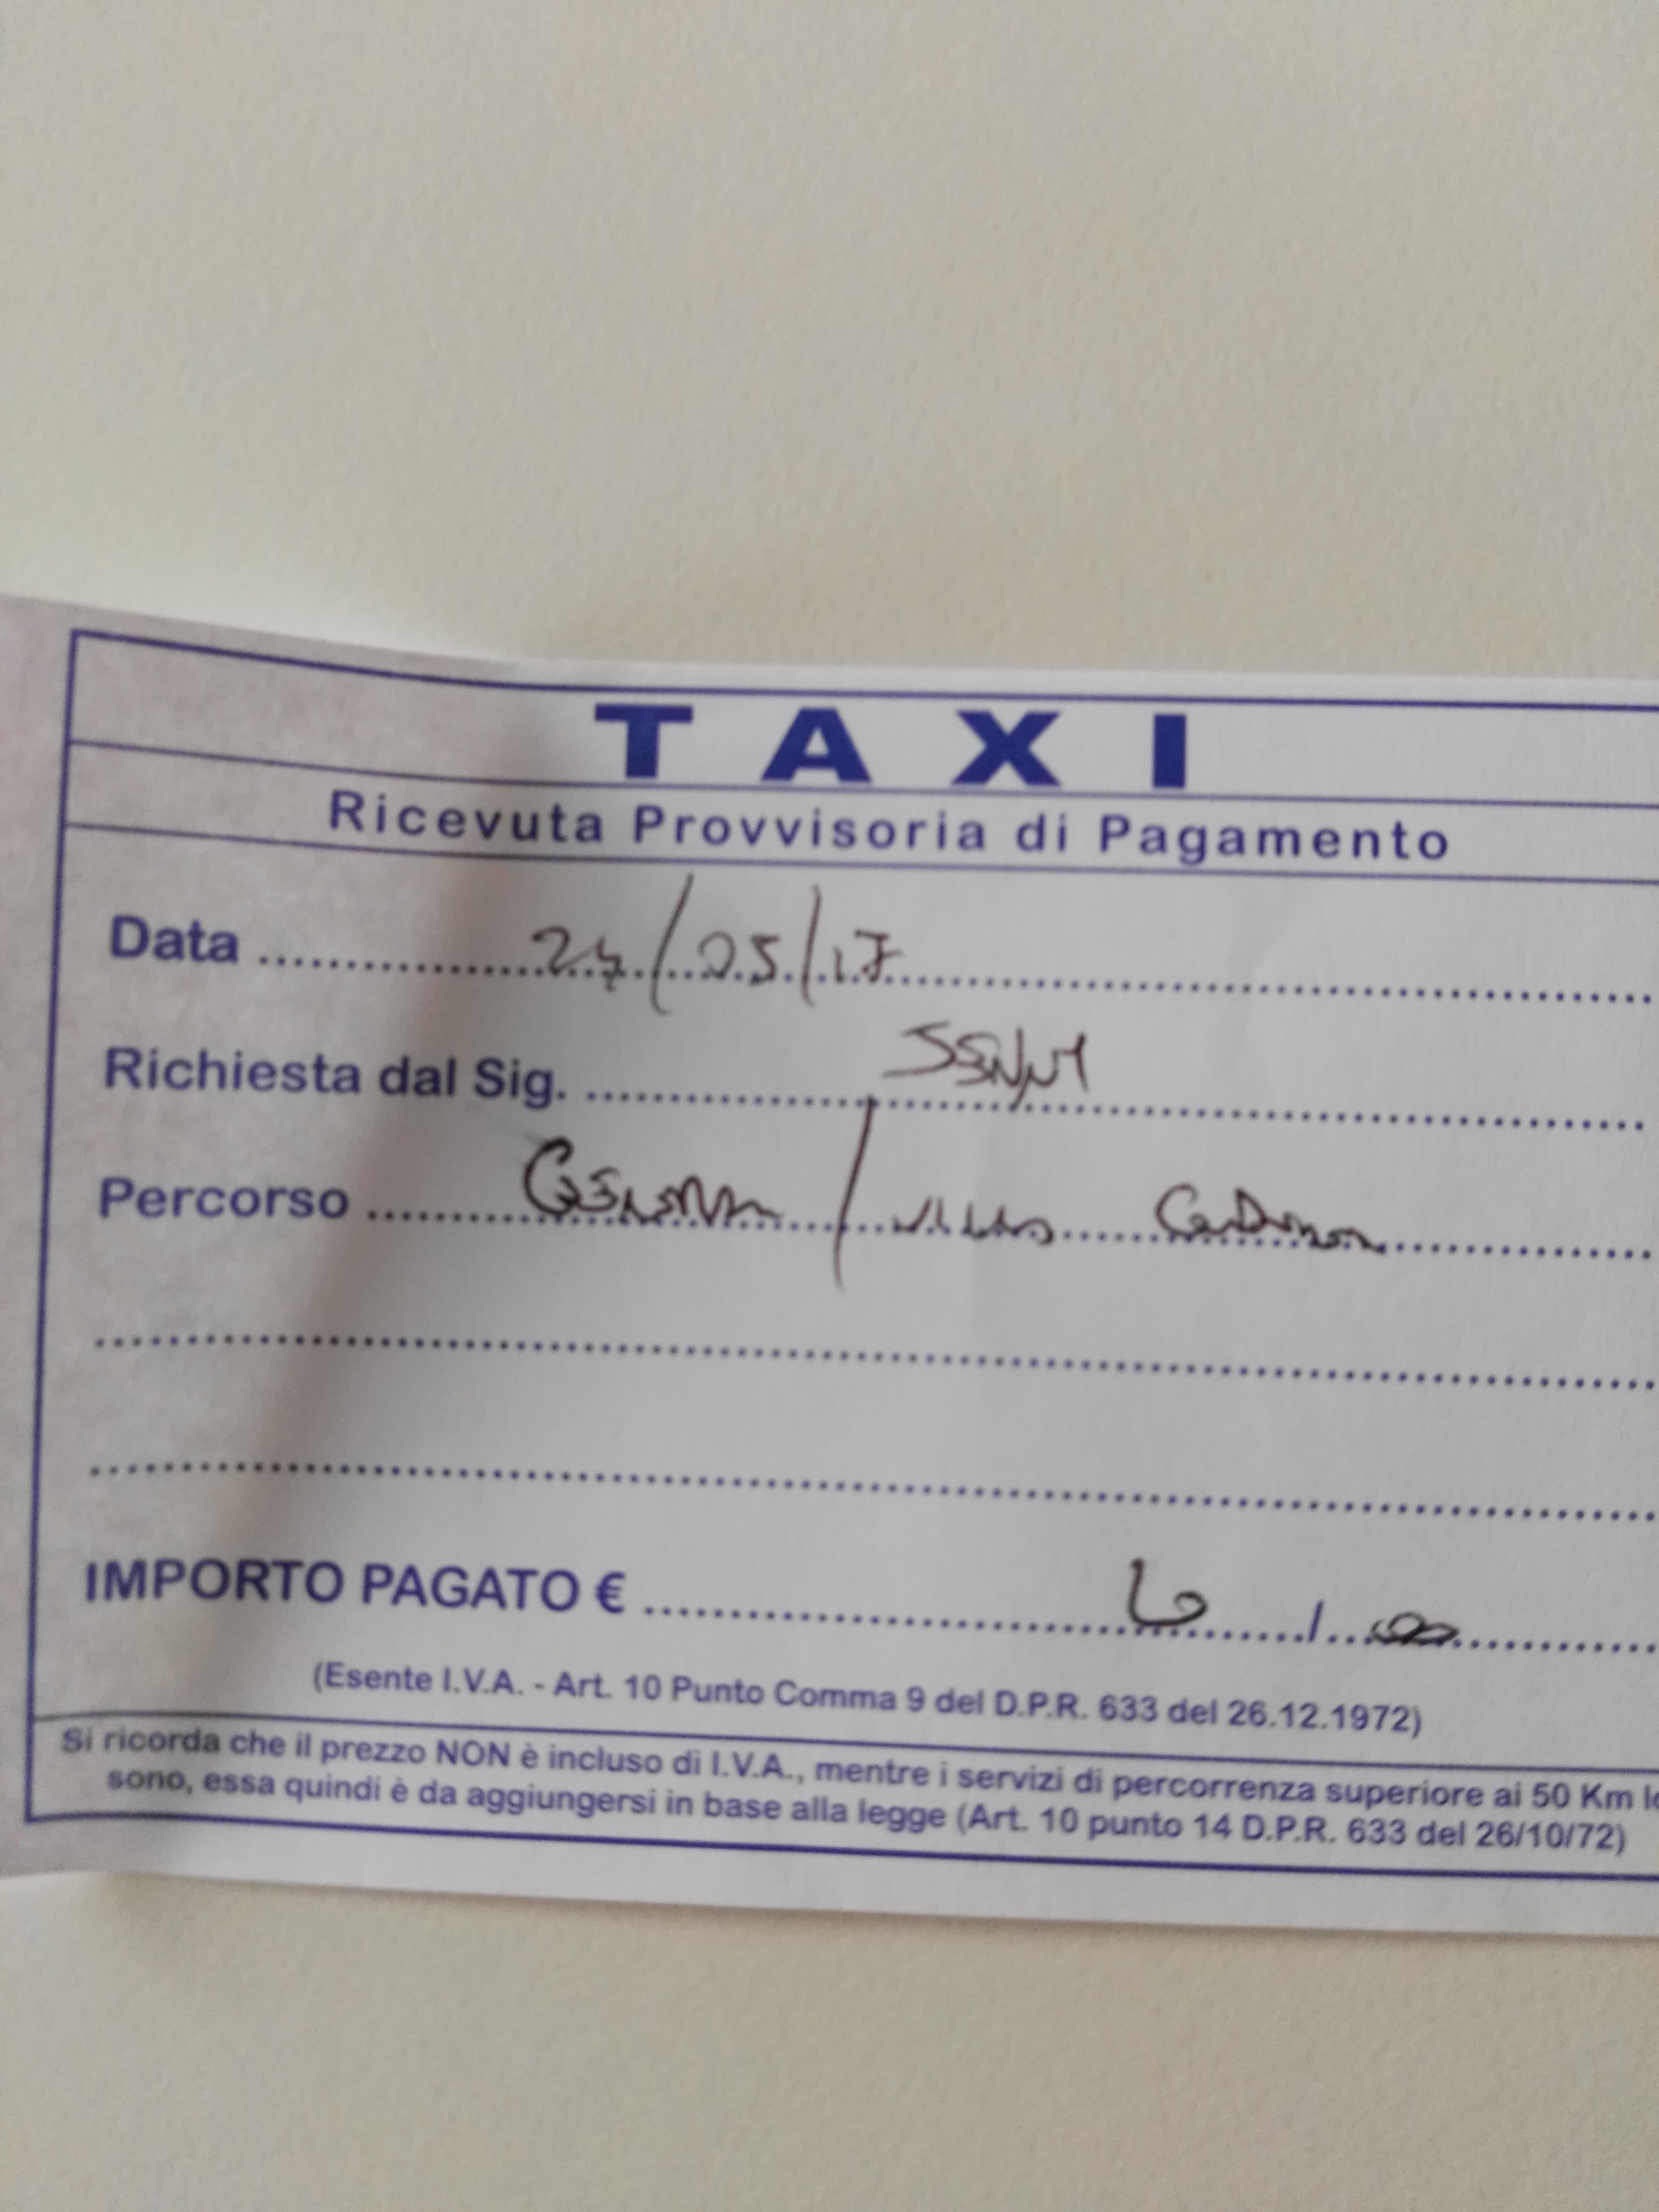 TAXI
Ricevuta Provvisoria di Pagamento
Data 24/05/17
Richiesta dal Sig. JENNY
Percorso /
IMPORTO PAGATO €
(Esente I.V.A. - Art. 10 Punto Comma 9 del D.P.R. 633 del 26.12.1972)
Si ricorda che il prezzo NON è incluso di I.V.A., mentre i servizi di percorrenza superiore ai 50 Km lo
sono, essa quindi è da aggiungersi in base alla legge (Art. 10 punto 14 D.P.R. 633 del 26/10/72)